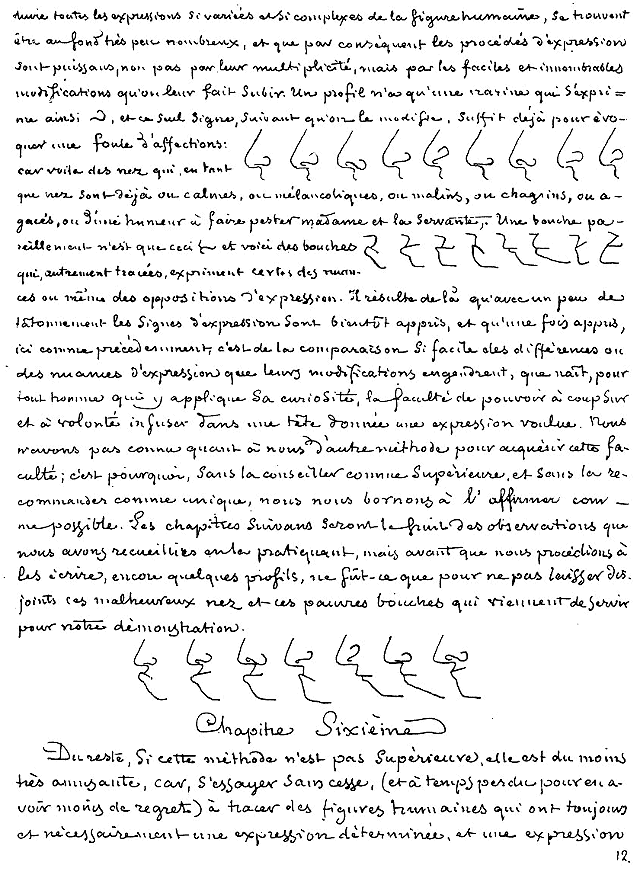 duire toutes les expressions si variées et si complexes de la figure humaine, se trouvent
être au fond très peu nombreux, et que par conséquent les procédés d'expression
sont puissans, non pas par leur multiplicité, mais par les faciles et innombrables
modifications qu'on leur fait subir. Un profil n'a qu'une narine qui s'expri=
me ainsi, et ce seul signe, suivant qu'on le modifie, suffit déjà pour évo-
quer une foule d'affections:
car voila des nez qui, en tant
que nez sont déjà ou calmes, ou mélancoliques, ou malins, ou chagrins, ou a-
gacés, ou d'une humeur à faire pester madame et la servante. Une bouche pa-
reillement n'est que ceci et voici des bouches
qui, autrement tracées, expriment certes des nuan-
ces ou même des oppositions d'expression. Il résulte de là qu'avec un peu de
tâtonnement les signes d'expression sont bientôt appris, et qu'une fois appris,
ici comme précédemment, c'est de la comparaison si facile des différences ou
des nuances d'expression que leurs modifications engendrent, que naît, pour
tout homme qui y applique sa curiosité, la faculté de pouvoir à coup sur
et à volonté infuser dans une tête donnée une expression voulue. Nous
n'avons pas connu quant à nous d'autre méthode pour acquérir cette fa-
culté; c'est pourquoi, sans la conseiller comme supérieure, et sans la re-
commander comme unique, nous nous bornons à l'affirmer com-
me possible. Les chapitres suivans seront le fruit des observations que
nous avons recueillies en la pratiquant, mais avant que nous procédions à
les écrire, encore quelques profils, ne fût-ce que pour ne pas laisser dis-
joints ces malheureux nez et ces pauvres bouches qui viennent de servir
pour notre démonstration.
Chapitre Sixième
Du reste, si cette méthode n'est pas supérieure, elle est du moins
très amusante, car, s'essayer sans cesse, (et à temps perdu pour en a-
voir moins de regret) à tracer des figures humaines qui ont toujours
et nécessairement une expression déterminée, et une expression
12.